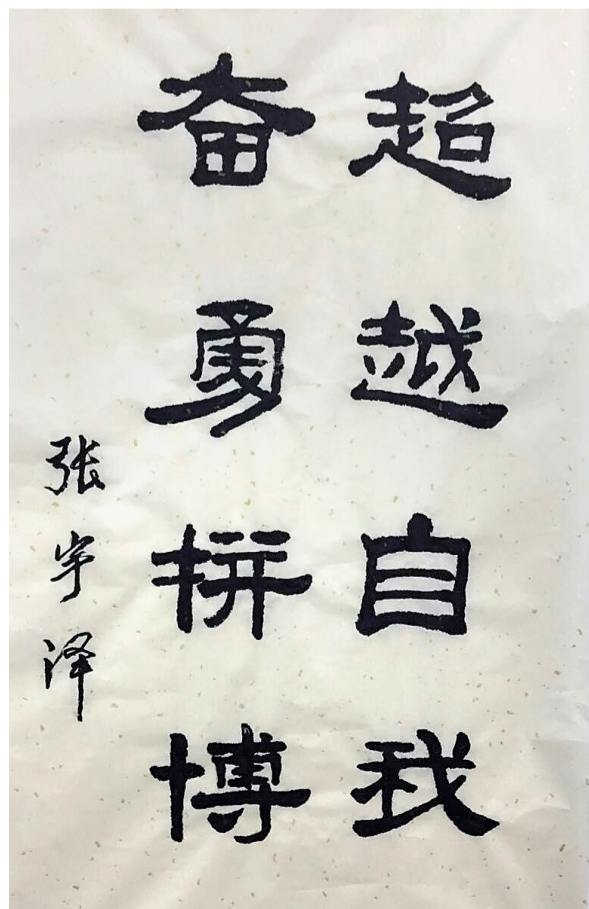 超越自我
奋勇拼博
张宇泽